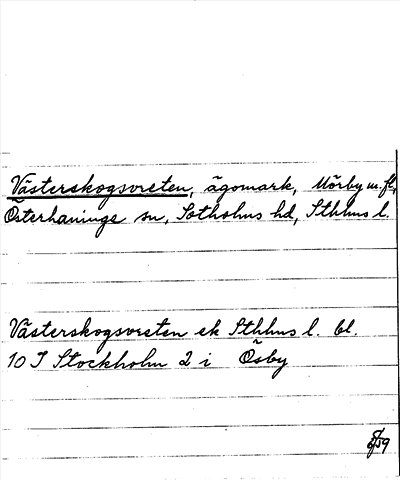 Västerskogsvreten, ägomark, Mörby m.fl,
Österhaninge sn, Sotholms hd, Sthlms l.
Västerskogsvreten ek Sthlms l. bl.
10 I Stockholm 2 i Ösby